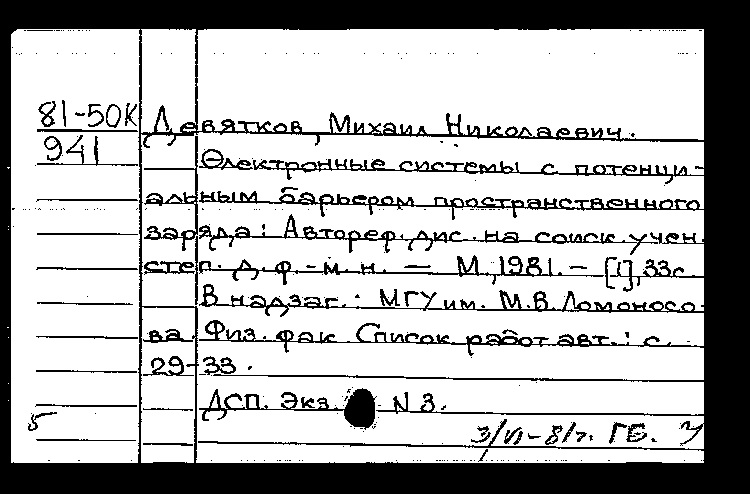 81-50К Девятков, Михаил Николаевич.
941 Электронные системы с потенци-
альным барьером пространственного
заряда: Автореф. дис. на соиск. учен.
степ. д. ф.-м. н. — М., 1981. — [1], 33с.
В надзаг.: МГУ им. М.В. Ломоносо-
ва. Физ. фак. Список работ авт.: с.
29-33.
ДСП. Экз. N 3.
5 3/VI-81г. ГБ.